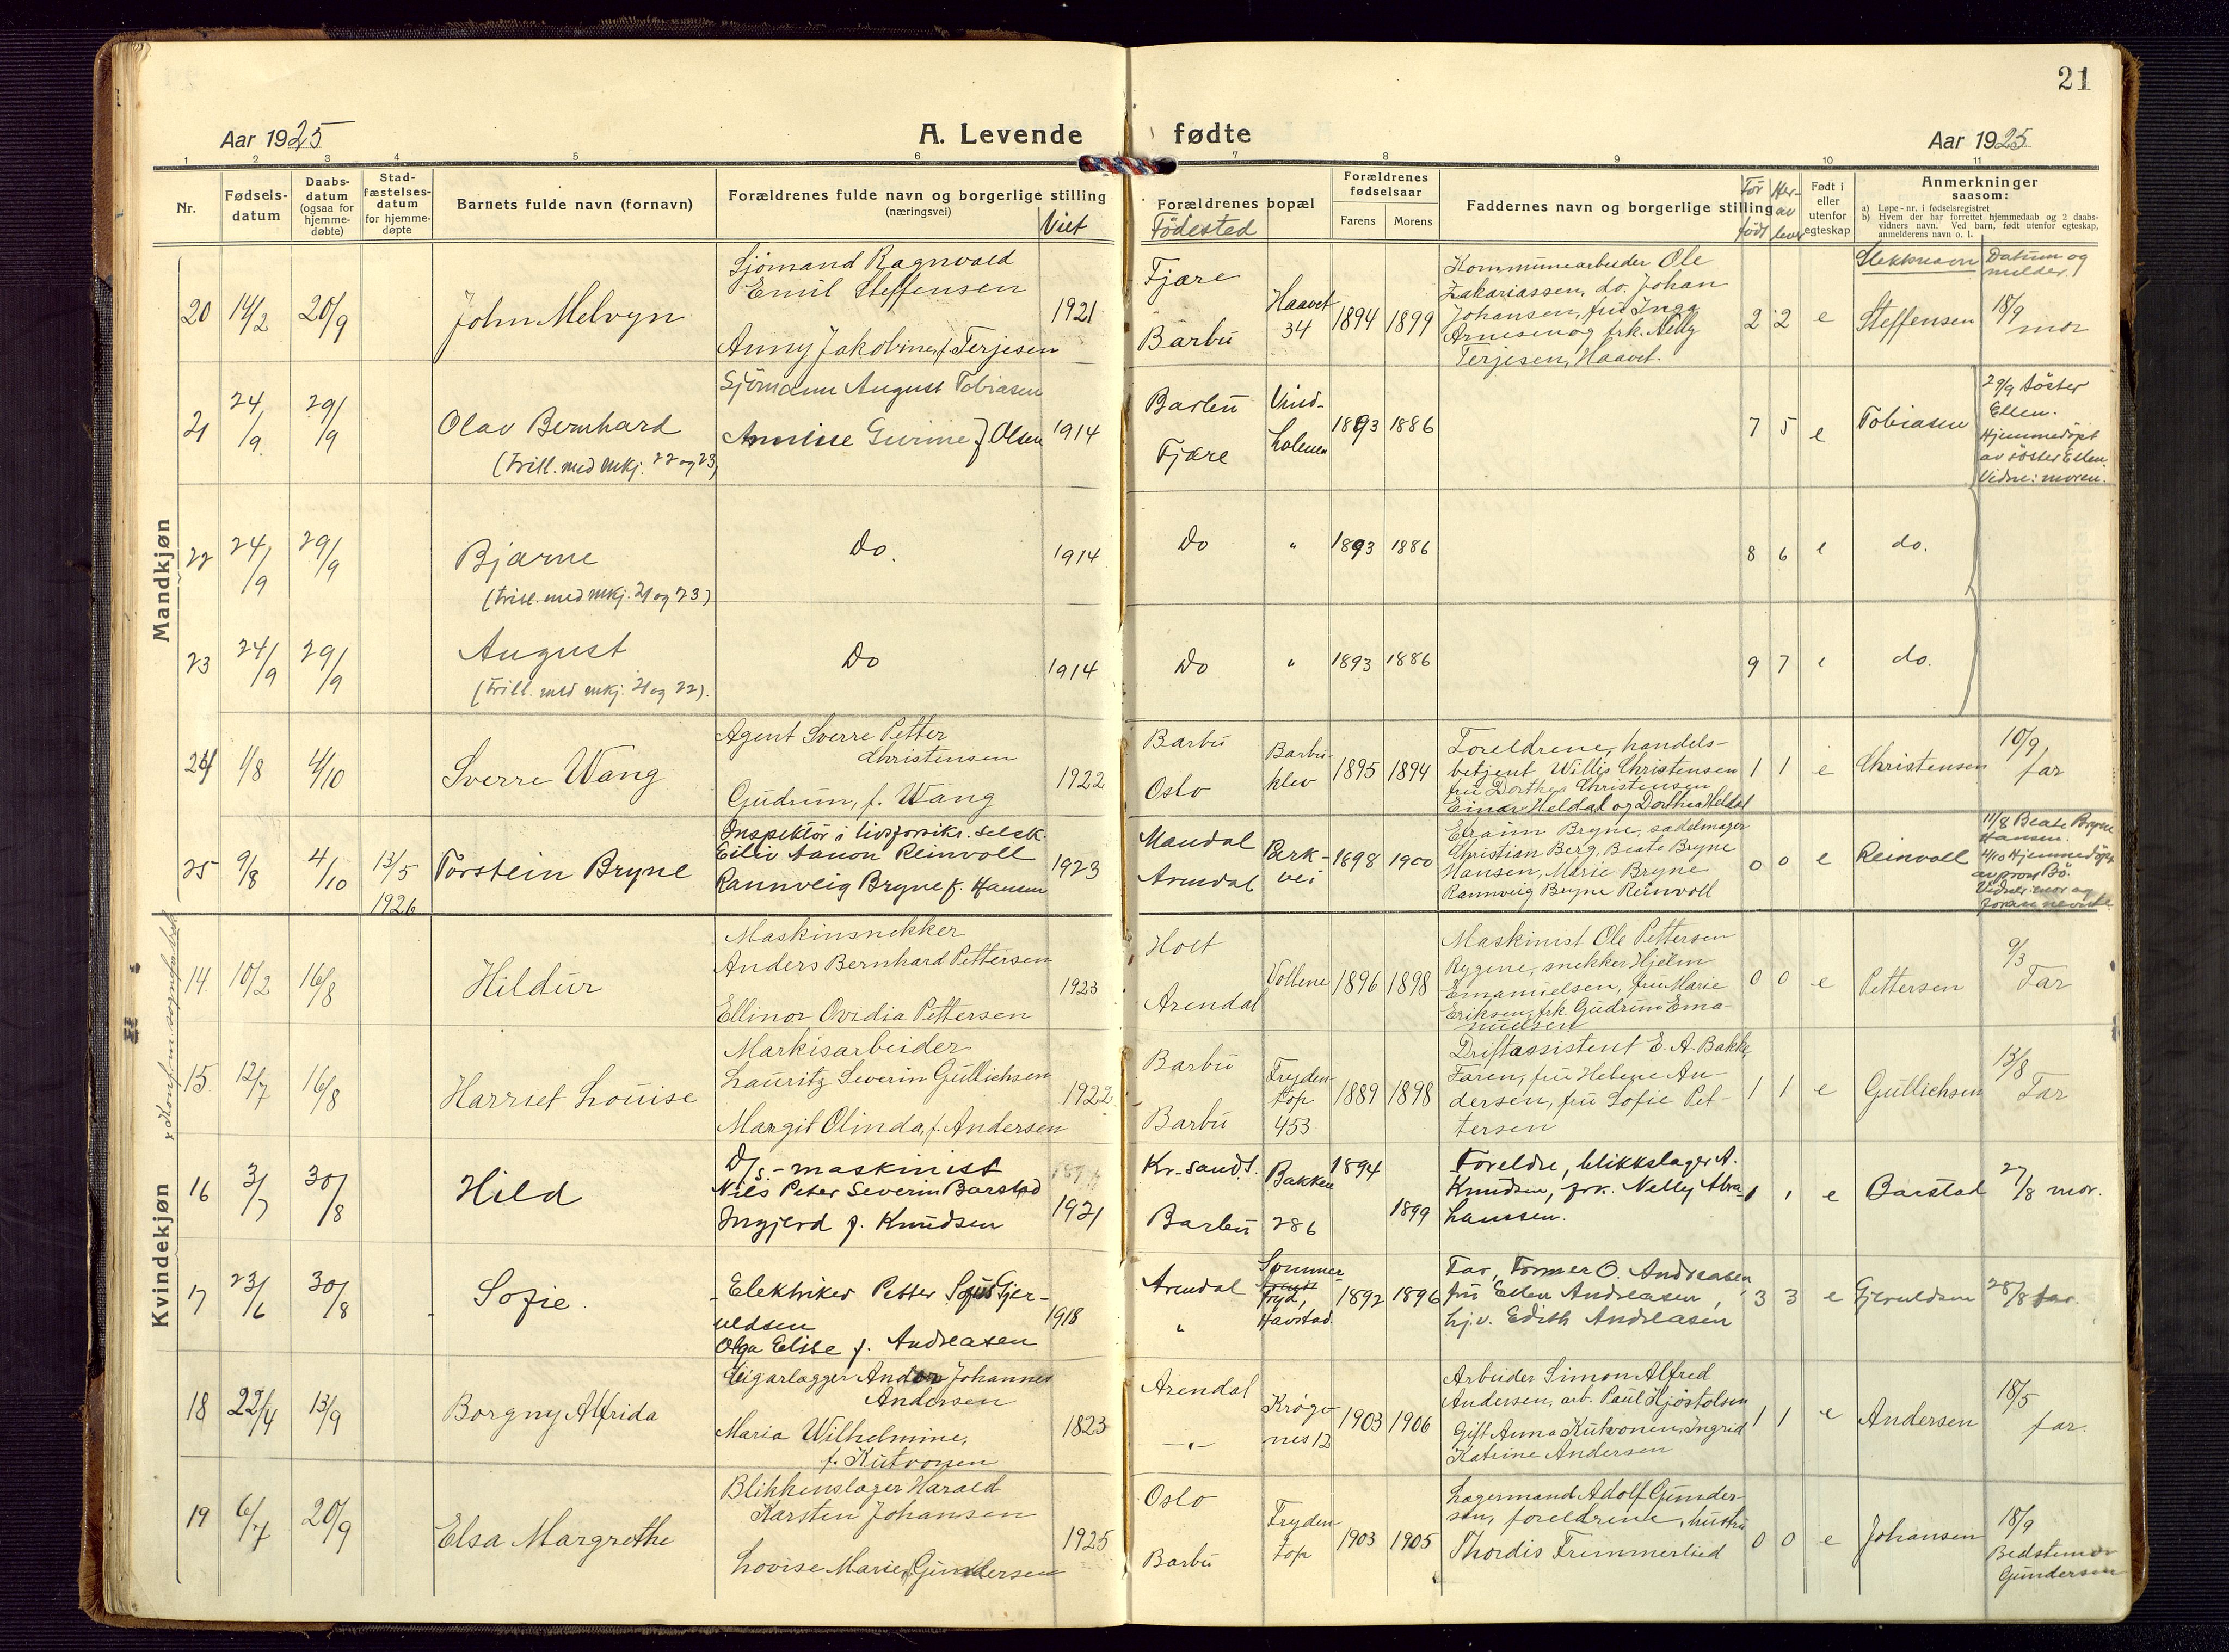 21
Aar 1925
A. Levende fødte
Aar 1925
1 2 3 4 5 6 7 8 9 10 11
Nr.
Fødsels-
datum
Daabs-
datum
(ogsaa for
hjemme-
døbte)
Stad-
fæstelses-
datum
for hjemme-
døpte
Barnets fulde navn (fornavn)
Forældrenes fulde navn og borgerlige stilling
(næringsvei)
Viet
Forældrenes bopæl
Födested
Forældrenes
fødselsaar
Farens Morens
Faddernes navn og borgerlige stilling
För
födt
Her-
av
lever
Født i
eller
utenfor
egteskap
Anmerkninger
saasom:
a) Løpe-nr. i fødselsregistret
b) Hvem der har forrettet hjemmedaab og 2 daabs-
vidners navn. Ved barn, født utenfor egteskap,
anmelderens navn o. l.
Slektnavn
Datum og
melder
Mandkjøn
20 14/2 20/9
John Melvyn
Sjömand Ragnvald
Emil Steffensen
Anny Jakobine, f. Terjesen
1921
Fjære
Barbu
Haavet
34
1894 1899
Kommunearbeider Ole
Zakariassen, do. Johan
Johansen, fru Inga
Arnesen og frk. Nelly
Terjesen, Haavet.
2 2 e
Steffensen
18/9
mor
21 24/9 29/9
Olav Bernhard
(trill. med mkj. 22 og 23)
Sjömann August Tobiasen
Annine Gurine f. Olsen
1914
Barbu
Fjære
Vind-
holmen
1893 1886
7 5 e
Tobiasen
29/9 söster
Ellen.
Hjemmedöpt
av söster Ellen.
Vidne: moren.
22 24/9 29/9
Bjarne
(trill. med mkj. 21 og 23)
Do.
1914
Do "
1893 1886
8 6 e
do.
23 24/9 29/9
August
(trill. med mkj. 21 og 22).
Do
1914
Do "
1893 1886
9 7 e
do.
24 1/8 4/10
Sverre Wang
Agent Sverre Petter
Christensen
Gudrun, f. Wang
1922
Barbu
Oslo
Barbu-
klev
1895 1894
Foreldrene, handels-
betjent Willis Christensen
fru Dorthea Christensen
Einar Heldal og Dorthea Heldal
1 1 e
Christensen
10/9
far
25 9/8 4/10 13/5
1926
Torstein Bryne
Inspektör i livsforsikr. selsk.
Eiliv Aanon Reinvoll
Rannveig Bryne f. Hansen
1923
Mandal
Arendal
Perk-
vei
1898 1900
Efraim Bryne, sadelmager
Christian Berg, Beate Bryne
Hansen, Marie Bryne
Rannveig Bryne Reinvoll
0 0 e
Reinvoll
11/8 Beate Bryne
Hansen.
4/10 Hjemmedöpt
av prost Bö.
Vidner: mor og
foran nevnte.
Kvindekjøn
14 10/2 16/8
Hildur
Maskinsnekker
Anders Bernhard Pettersen
Ellinor Ovidia Pettersen
1923
Holt
Arendal
Vollene
1896 1898
Maskinist Ole Pettersen
Rygene, snekker Hjelm
Emanuelsen, fru Marie
Eriksen, frk. Gudrun Ema-
nuelsen
0 0 e
Pettersen
9/3
Far
15 12/7 16/8
Harriet Louise
Markisarbeider
Lauritz Severin Gullichsen
Margit Olinda, f. Andersen
1922
Barbu
Barbu
Fryden-
top
453
1889 1898
Driftassistent E. A. Bakke
Faren, fru Helene An-
dersen, fru Sofie Pet-
tersen
1 1 e
Gullichsen
13/8
Far
16 3/7 30/8
Hild
D/s.-maskinist
Nils Peter Severin Barstad
Ingjerd f. Knudsen
1921
Kr-sand S.
Barbu
Bakken
286
1894
1899
Foreldre, blikkslager A.
Knudsen, frk. Nelly Abra-
hamsen.
1 1 e
Barstad
27/8 mor.
17 23/6 30/8
Sofie.
Elektriker Petter Sofus Gjer-
uldsen
Olga Elise f. Andreasen
1918
Arendal
"
Sommer
fryd,
Havstad
1892 1896
Far, Former O. Andreasen,
fru Ellen Andreasen,
hj.v. Edith Andreasen
3 3 e
Gjeruldsen
28/8 far.
18 22/4 13/9
Borgny Alfrida
Andor Johannes
Andersen
Maria Wilhelmine,
f. Kutvonen
1823
Arendal
-"-
Kröge-
nes 12
1903 1906
Arbeider Simon Alfred
Andersen, arb. Paul Hjöstolsen
Gift Anna Kutvonen, Ingrid
Katrine Andersen
1 1 e
Andersen
18/5
far.
19 6/7 20/9
Elsa Margrethe
Blikkenslager Harald
Karsten Johansen
Lovise Marie, f. Gundersen
1925
Oslo
Barbu
Fryden
top
1903 1905
Lagermand Adolf Gunder-
sen, foreldrene, hustru
Thordis Trimmerlied
0 0 e
Johansen
18/9
Bedstemor
Gundersen